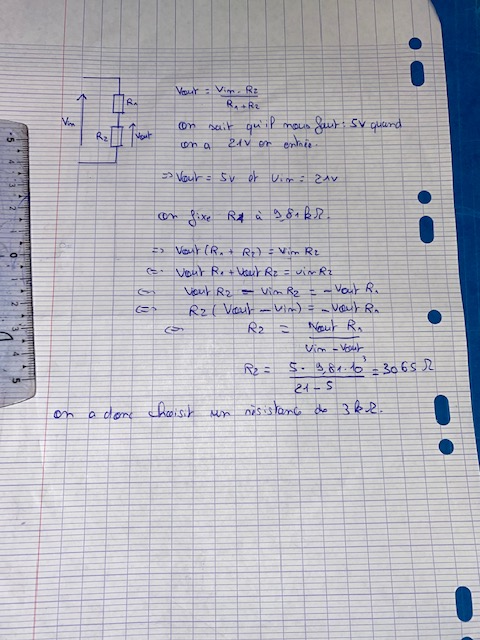 Vout = Vin . R2 / R1 + R2
R1
Vin
R2
Vout
on sait qu'il nous faut : 5V quand
on a 21V en entrée.
=> Vout = 5V et Vin = 21V
on fixe R1 à 9,81kΩ.
=> Vout (R1 + R2) = Vin R2
<=> Vout R1 + Vout R2 = Vin R2
<=> Vout R2 - Vin R2 = -Vout R1
<=> R2 (Vout - Vin) = -Vout R1
<=> R2 = Vout R1 / Vin - Vout
R2 = 5 . 9,81.10³ / 21 - 5 = 3065 Ω
on a donc choisit un résistance de 3kΩ.
-5 4 3 2 1 0 1 2 3 4 5